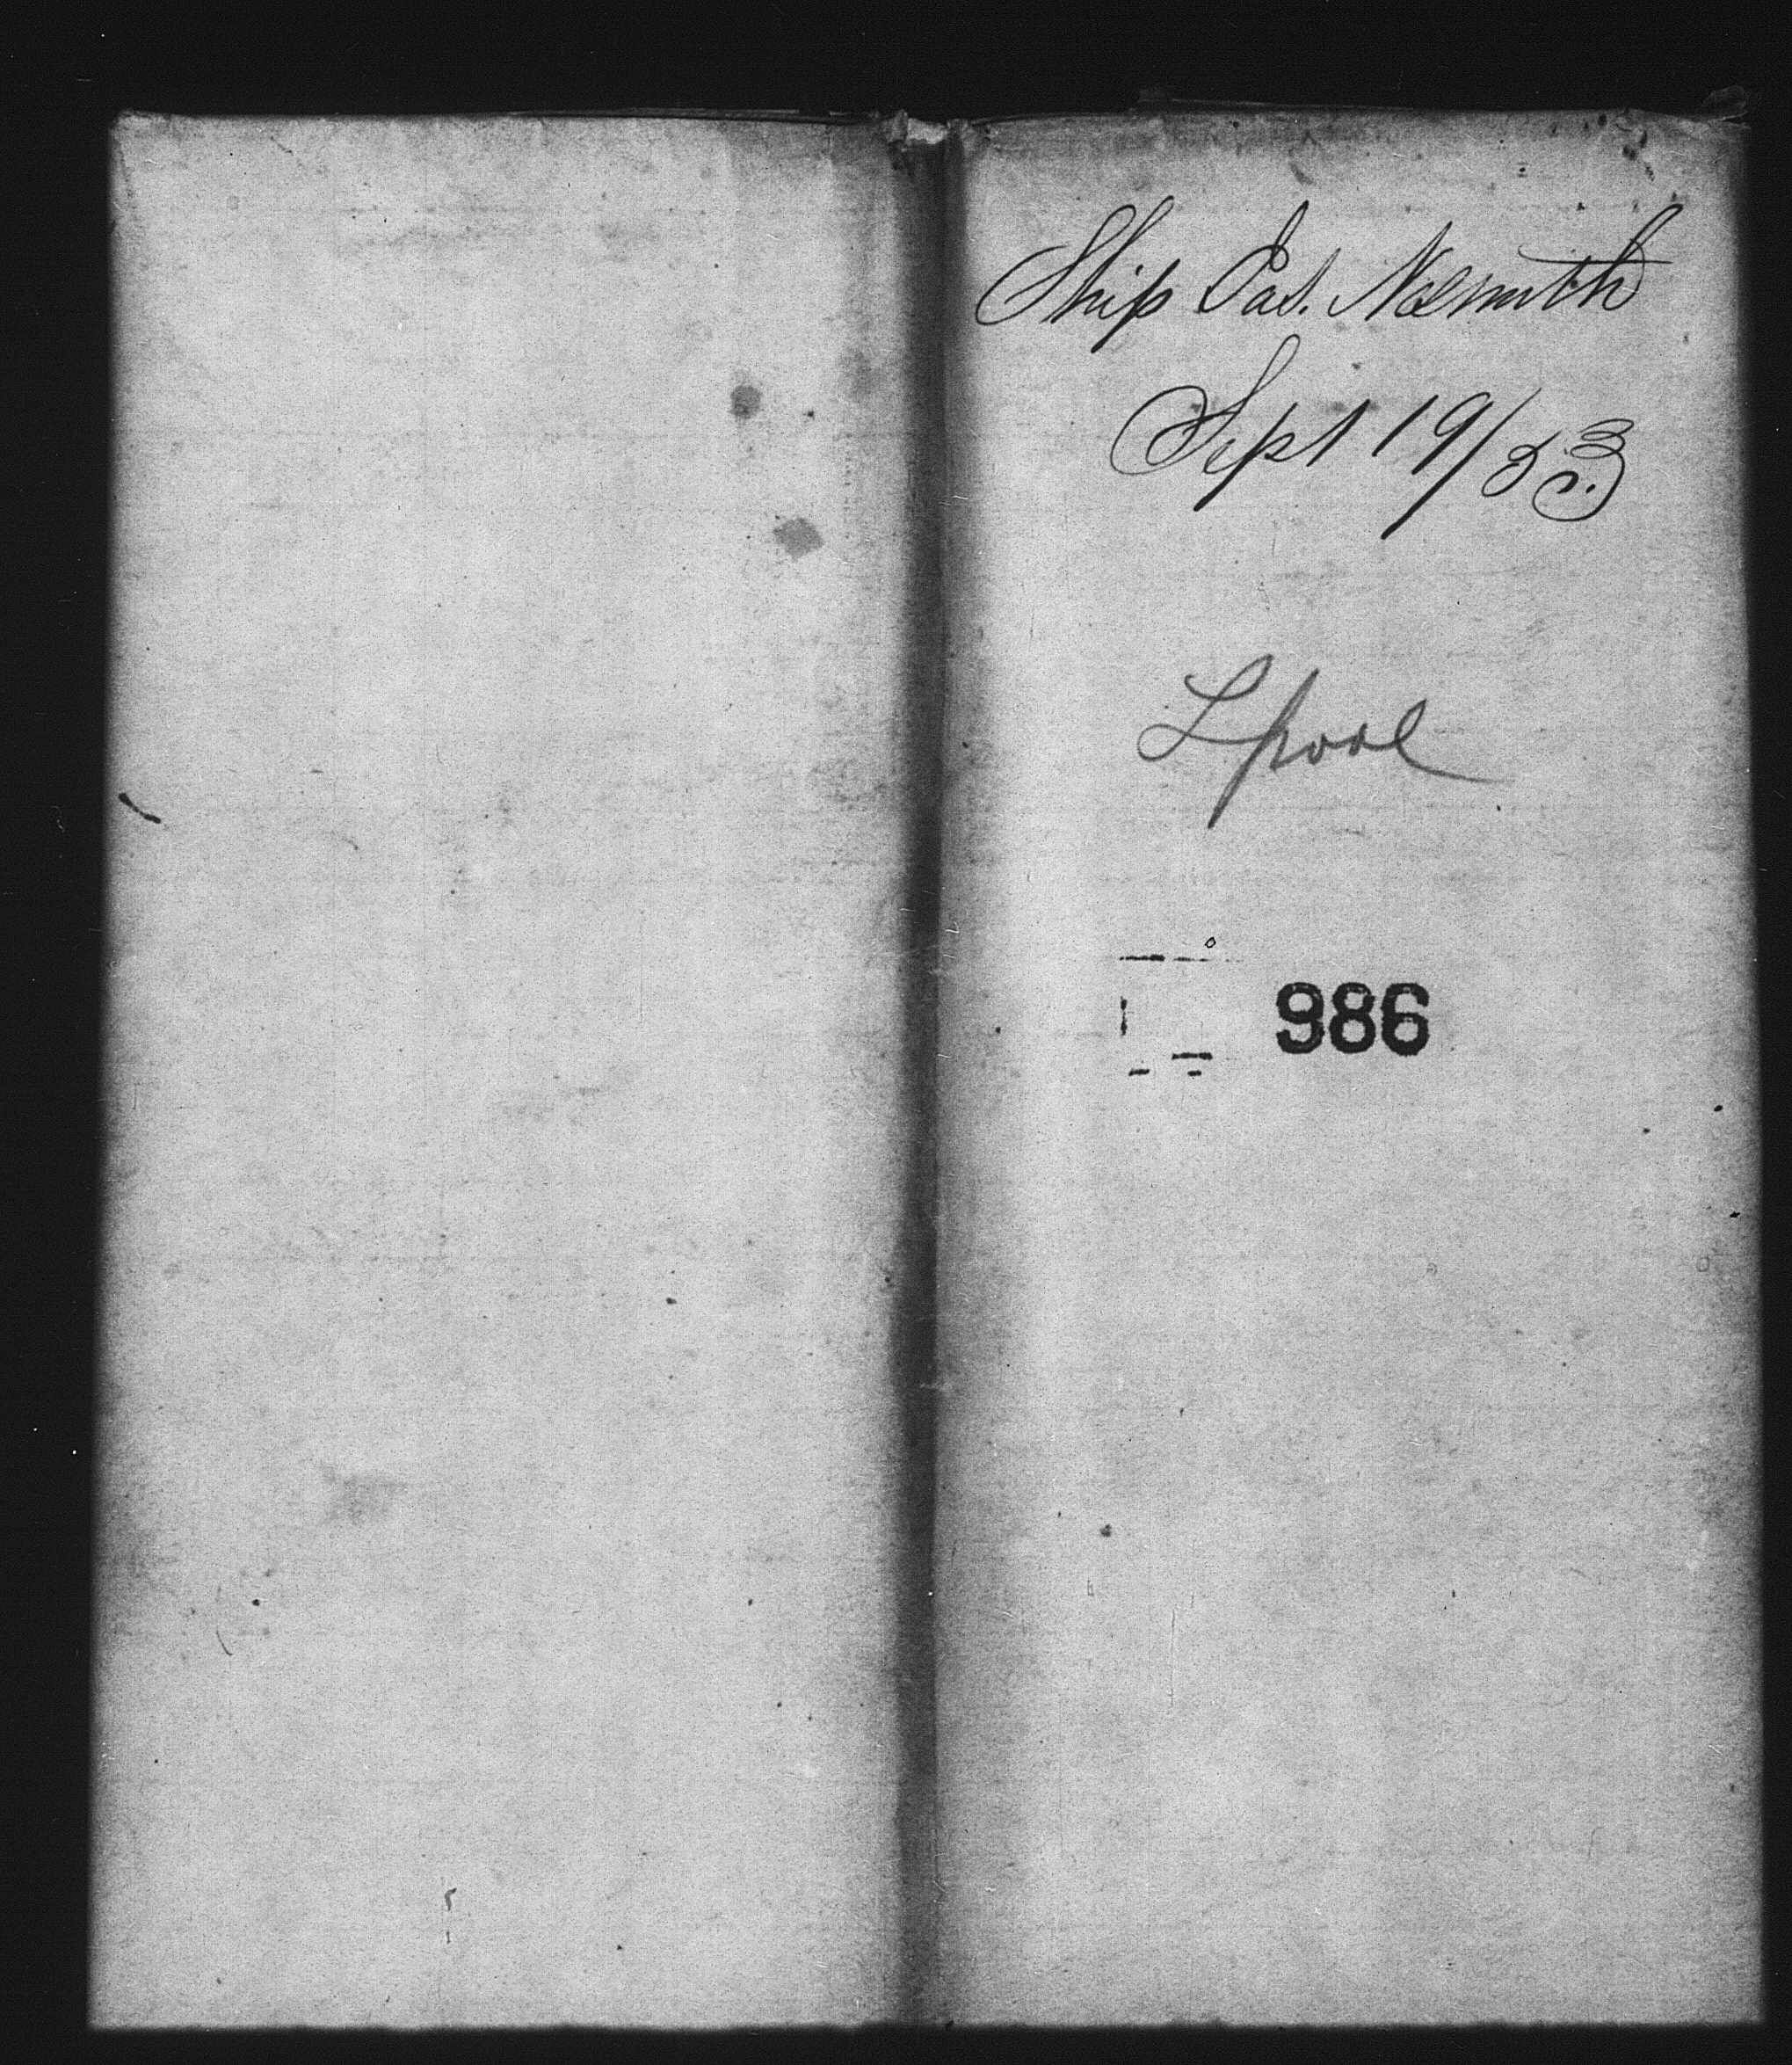 Ship Jas. Nesmith
Sept 19/53
Lpool
986